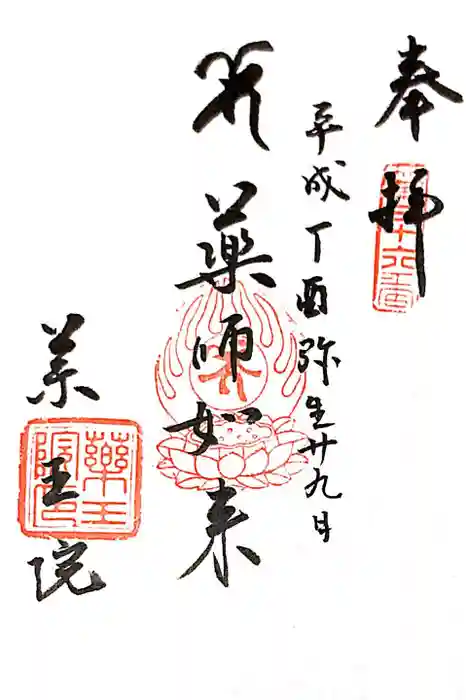 奉拝
平成丁酉弥生廿九日
薬師如来
薬王院
薬王
院印